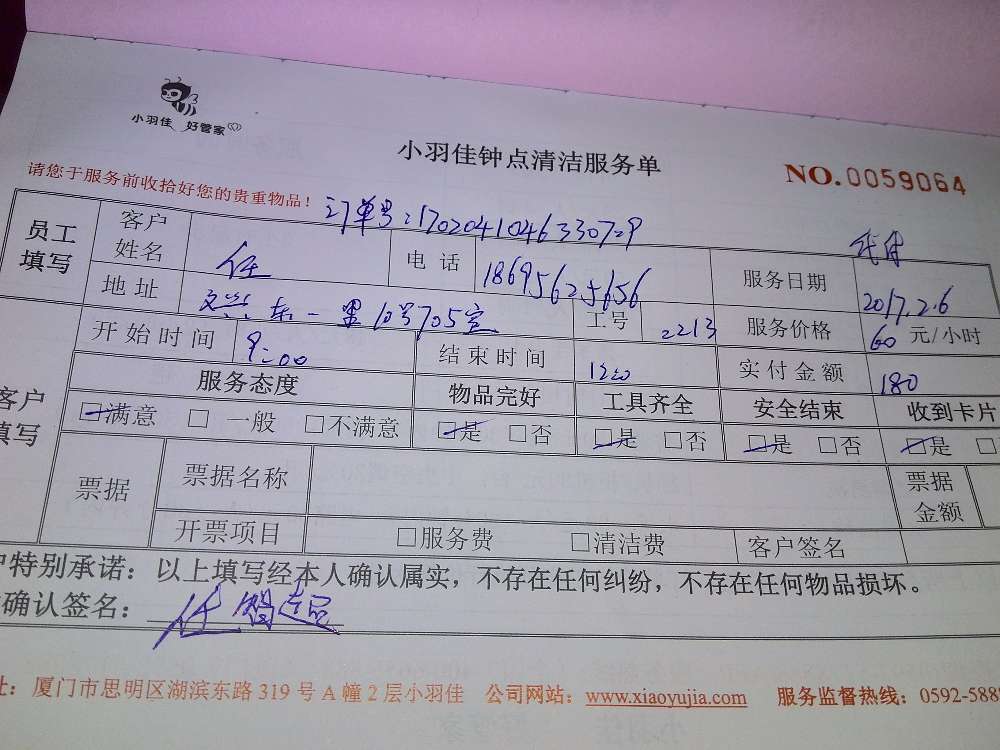 小羽佳 好管家
小羽佳钟点清洁服务单
NO.0059064
请您于服务前收拾好您的贵重物品！
订单号：
员工填写 客户姓名 任 电话 18695625656 服务日期 2017.2.6
地址 文兴东一里10号705室 工号 2213 服务价格 60 元/小时
开始时间 9:00 结束时间 1200 实付金额 180
客户填写 服务态度 物品完好 工具齐全 安全结束 收到卡片
□满意 □一般 □不满意 □是 □否 □是 □否 □是 □否 □是 □
票据 票据名称 票据金额
开票项目 □服务费 □清洁费 客户签名
户特别承诺：以上填写经本人确认属实，不存在任何纠纷，不存在任何物品损坏。
确认签名：任
址：厦门市思明区湖滨东路319号A幢2层小羽佳 公司网站：www.xiaoyujia.com 服务监督热线：0592-588